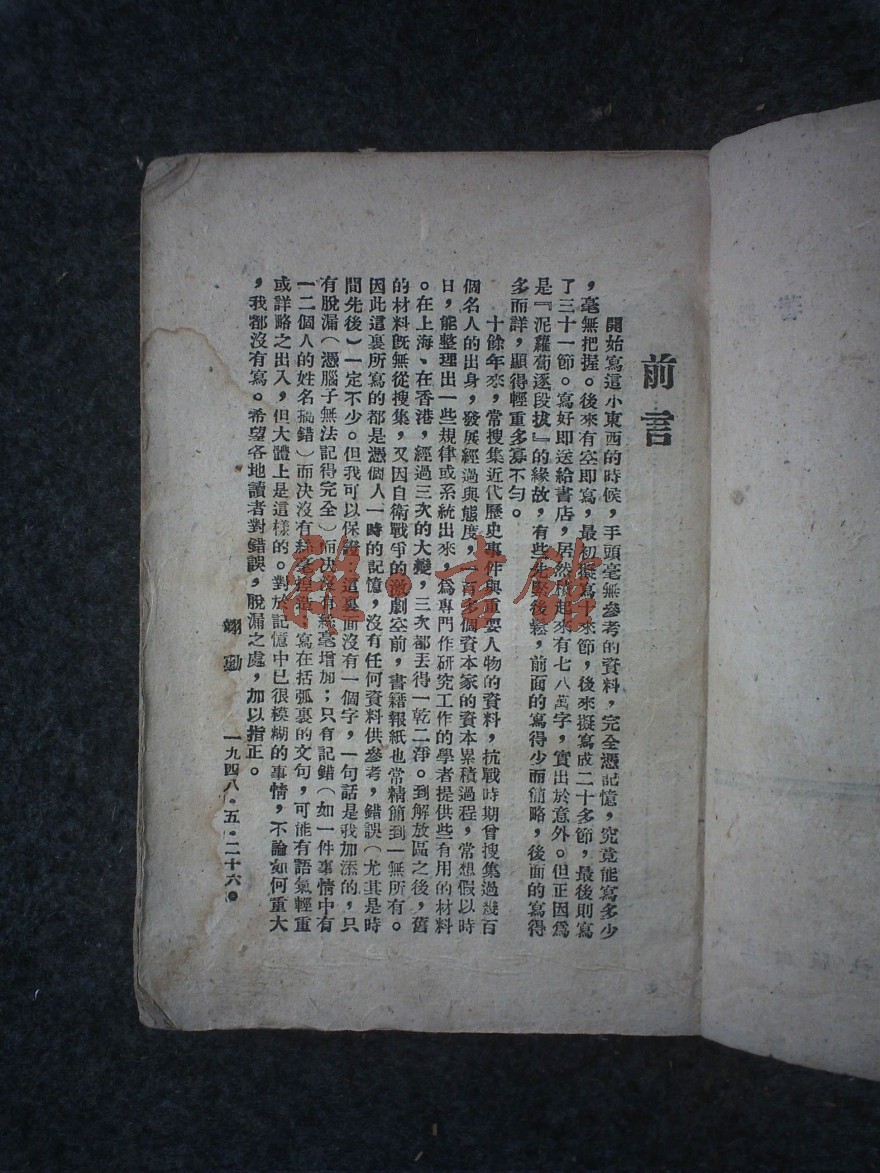 前言
開始寫這小東西的時候，手頭毫無參考的資料，完全憑記憶，究竟能寫多少
，毫無把握。後來有空即寫，最初擬寫十來節，後來擬寫成二十多節，最後則寫
了三十一節。寫好即送給書店，居然積起來有七八萬字，實出於意外。但正因爲
是『泥蘿蔔逐段拔』的緣故，有些先緊後鬆，前面的寫得少而簡略，後面的寫得
多而詳，顯得輕重多寡不勻。
十餘年來，常搜集近代歷史事件與重要人物的資料，抗戰時期曾搜集過幾百
個名人的出身，發展經過與態度，一百多個資本家的資本累積過程，常想假以時
日，能整理出一些規律或系統出來，爲專門作研究工作的學者提供些有用的材料
。在上海、在香港，經過三次的大變，三次都丟得一乾二淨。到解放區之後，舊
的材料既無從搜集，又因自衛戰爭的激劇空前，書籍報紙也常精簡到一無所有。
因此這裏所寫的都是憑個人一時的記憶，沒有任何資料供參考，錯誤（尤其是時
間先後）一定不少。但我可以保證，這裏面沒有一個字，一句話是我加添的，只
有脫漏（憑腦子無法記得完全）而決沒有絲毫增加；只有記錯（如一件事情中有
一二個人的姓名搞錯）而決沒有絲毫捏造。寫在括弧裏的文句，可能有語氣輕重
或詳略之出入，但大體上是這樣的。對於記憶中已很模糊的事情，不論如何重大
，我都沒有寫。希望各地讀者對錯誤，脫漏之處，加以指正。
翊勳 一九四八・五・二十六。
雜・書館